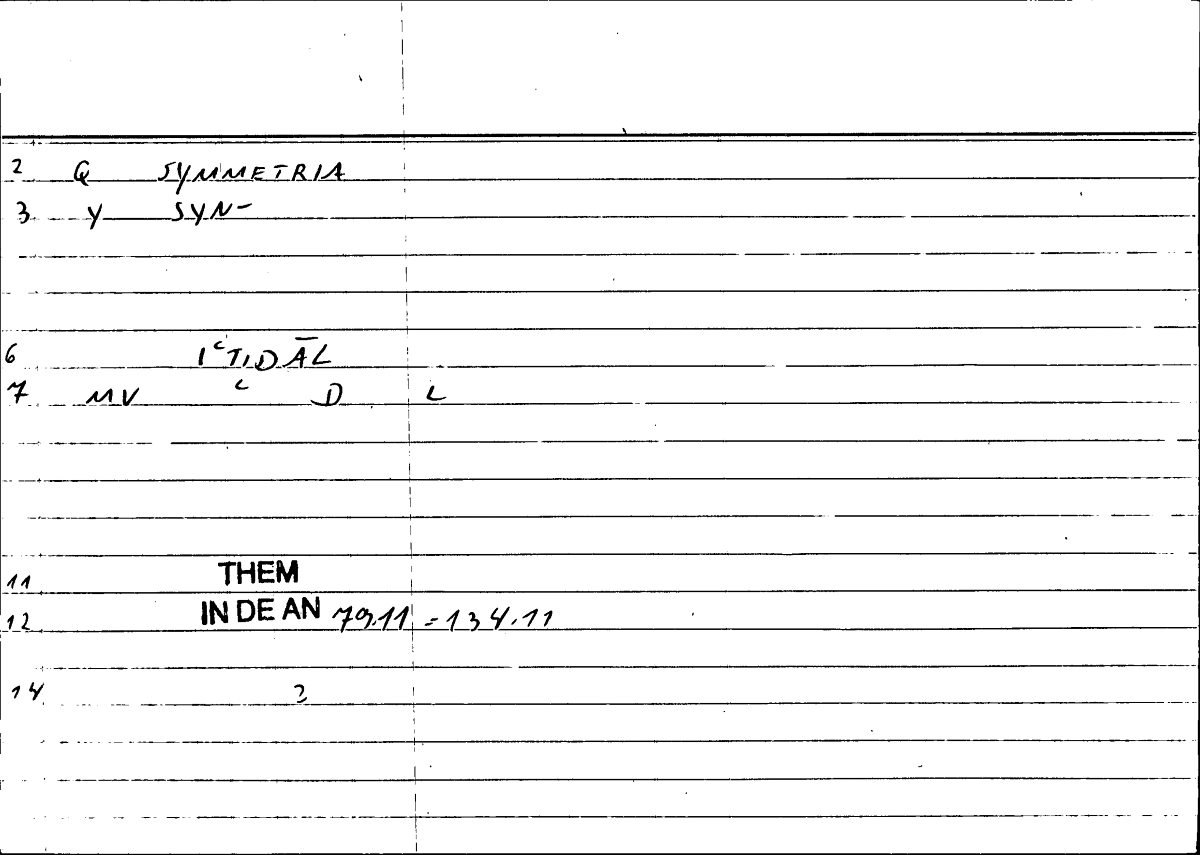 2 Q SYMMETRIA
3 Y SYN-
6 IʿTIDĀL
7 MV ʿ D L
11 THEM
12 IN DE AN 79.11 = 134.11
14 2